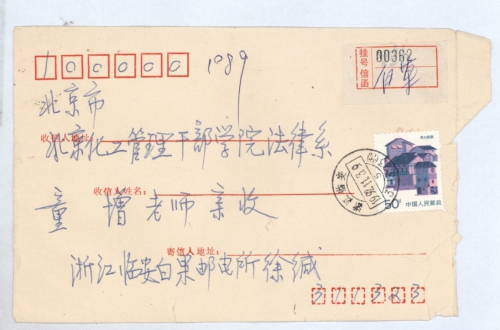 100000 1089
挂号信函
00362
白果
北京市
收信人地址:
北京化工管理干部学院法律系
收信人姓名:
童增老师亲收
寄信人地址:
浙江临安白果邮电所徐缄
311323
50分
中国人民邮政